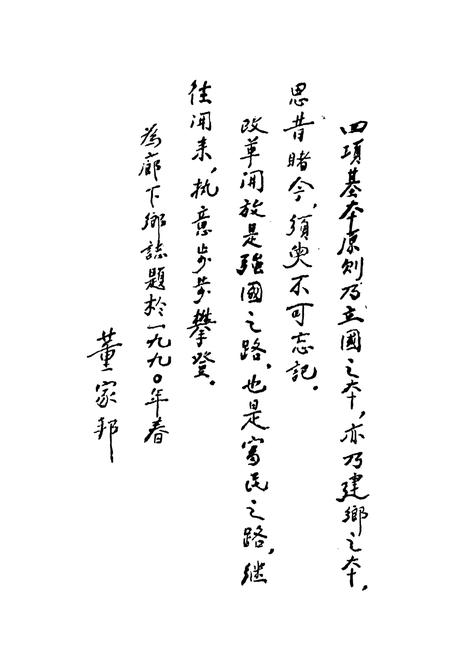 四項基本原则乃立國之本，亦乃建鄉之本，
思昔睹今，須臾不可忘記。
改革開放是強國之路，也是富民之路，継
往開来，执意步步攀登。
為廊下鄉誌題於一九九〇年春
董家邦